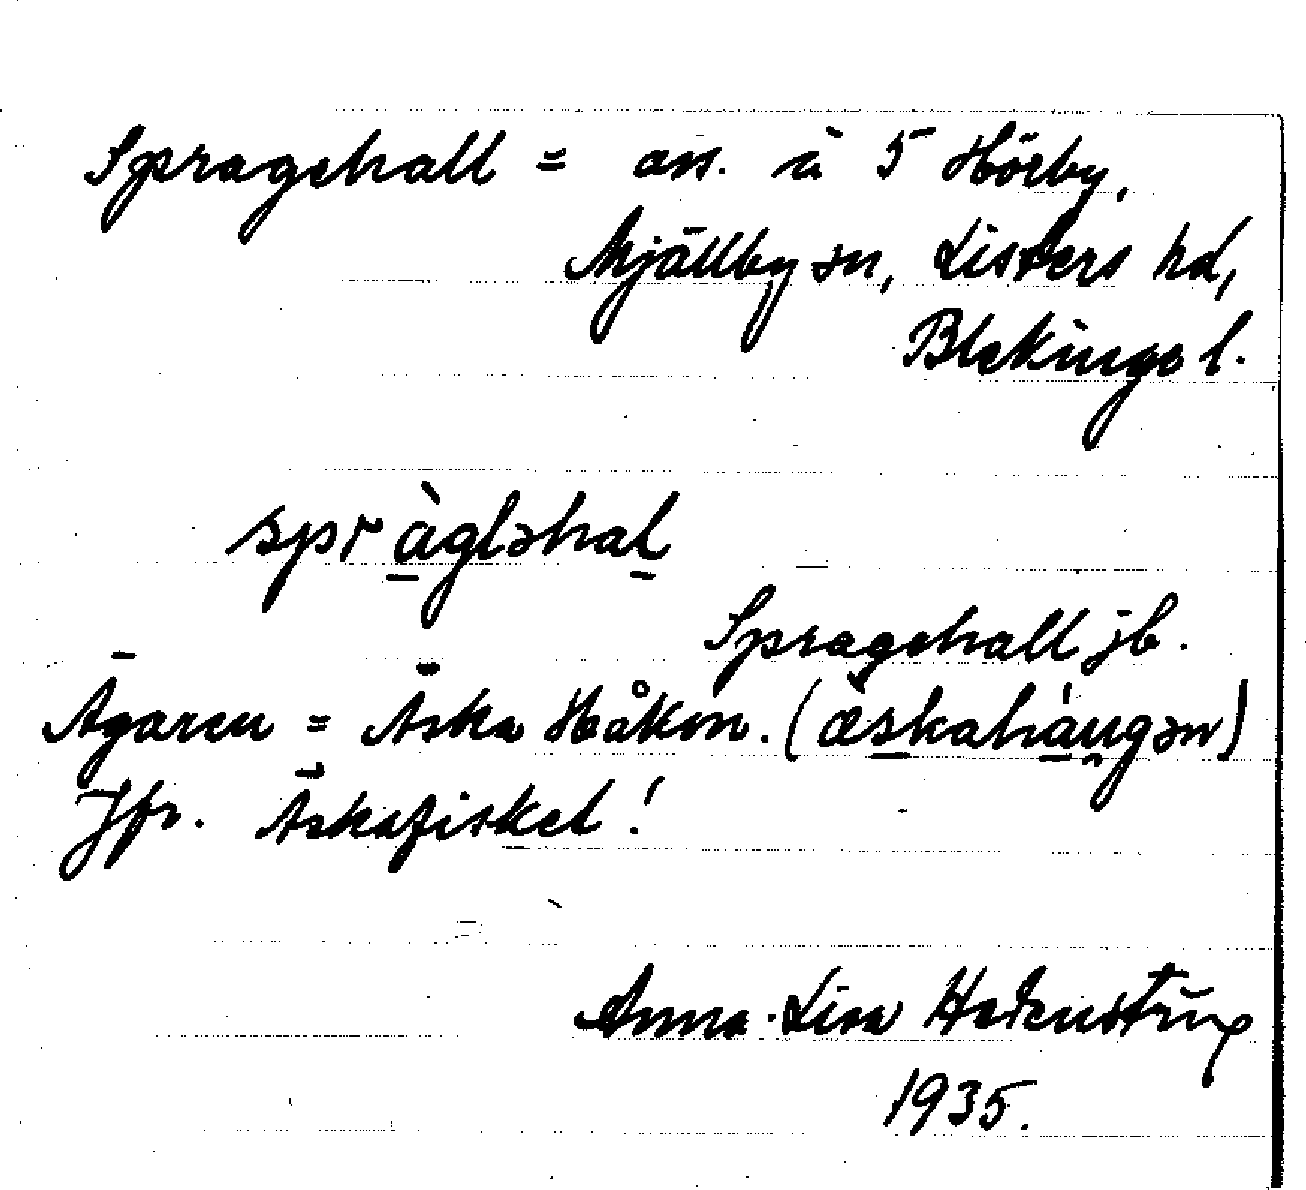 Spragehall = an. å 5 Hörby,
Mjällby sn, Listers hd,
Blekinge l.
spràgləhal
Spragehall jb.
Ägaren = Äska Håkon. (æskaháŋgən)
Jfr. Äskafisket!
Anna-Lisa
1935.